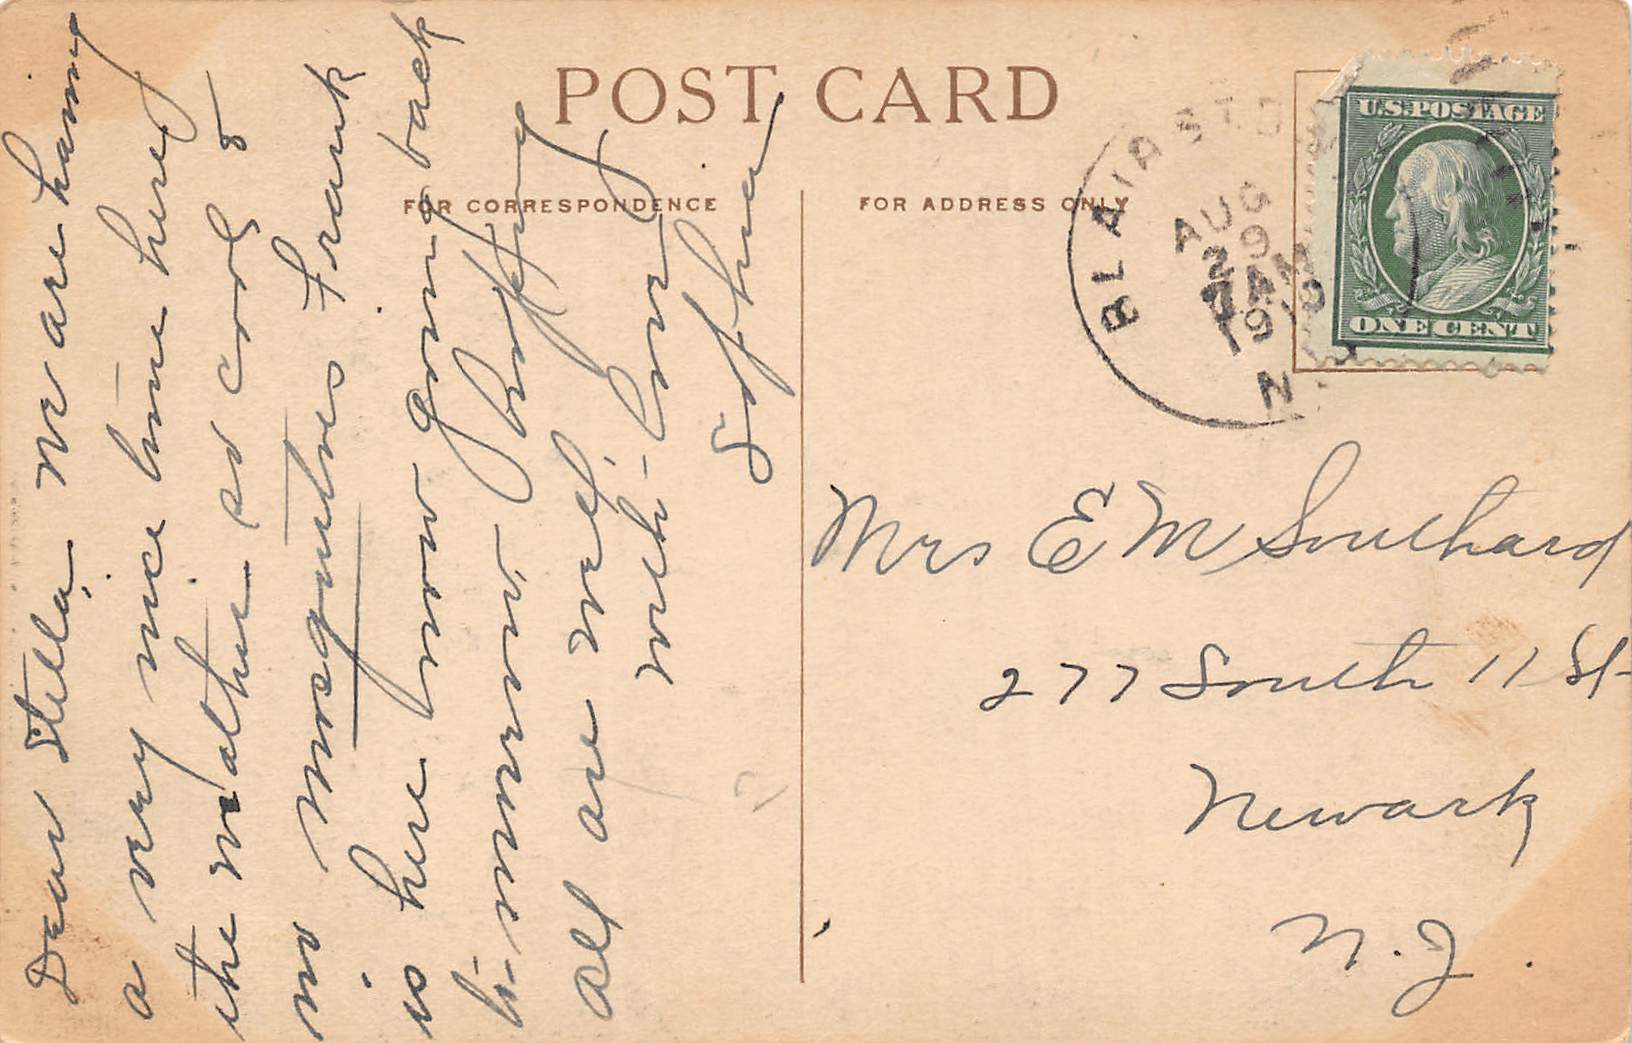 POST CARD
FOR CORRESPONDENCE
FOR ADDRESS ONLY
BLAIRSTO
AUG
29
7 AM
1910
N. J.
U.S. POSTAGE
ONE CENT
Dear Stella, We are having
a very nice time here,
the weather is cool &
no mosquitoes Frank
is here now going back
to-morrow
All are well.
with love
Mrs E M Southard
277 South 11 St
Newark
N. J.